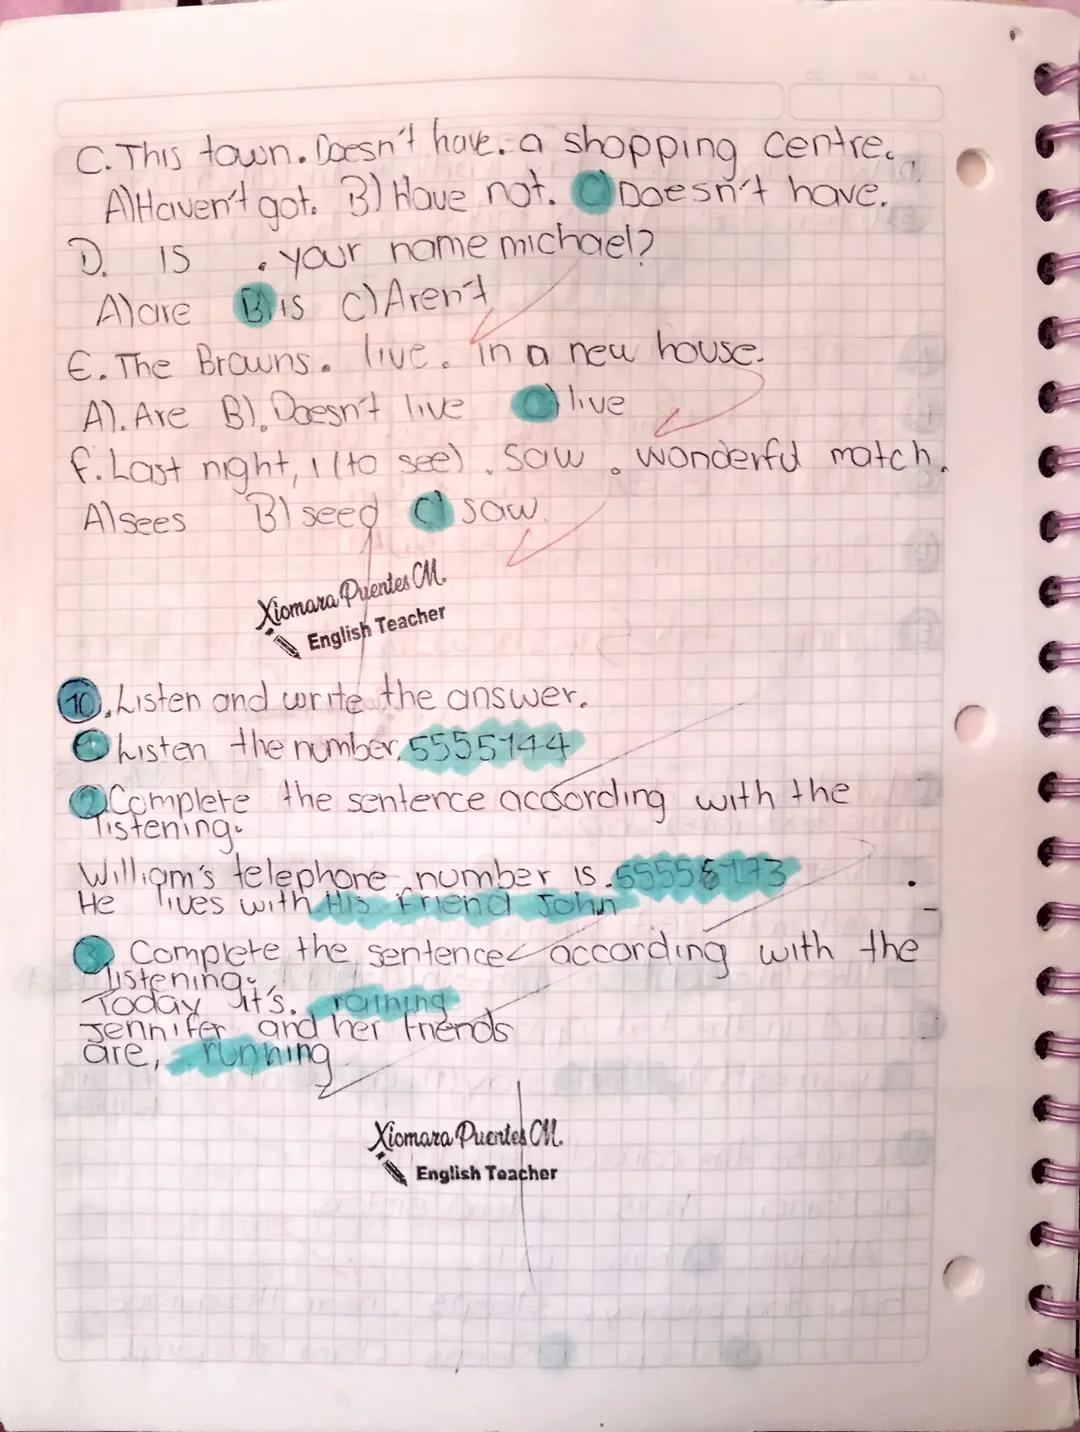 C. This town. Doesn't have. a shopping centre.
A) Haven't got. B) Have not. C) Doesn't have.
D. Is . your name michael?
A) are B) is C) Aren't
E. The Browns. live. in a new house.
A). Are B). Doesn't live C) live
F. Last night, I (to see) . saw . wonderful match.
A) sees B) seed C) saw
Xiomara Puentes CM.
English Teacher
10. Listen and write the answer.
1 Listen the number. 5555144
2. Complete the sentence according with the
listening.
William's telephone number is.
He lives with His Friend John
3 Complete the sentence according with the
listening.
Today it's. raining
Jennifer and her friends
are, running
Xiomara Puentes CM.
English Teacher